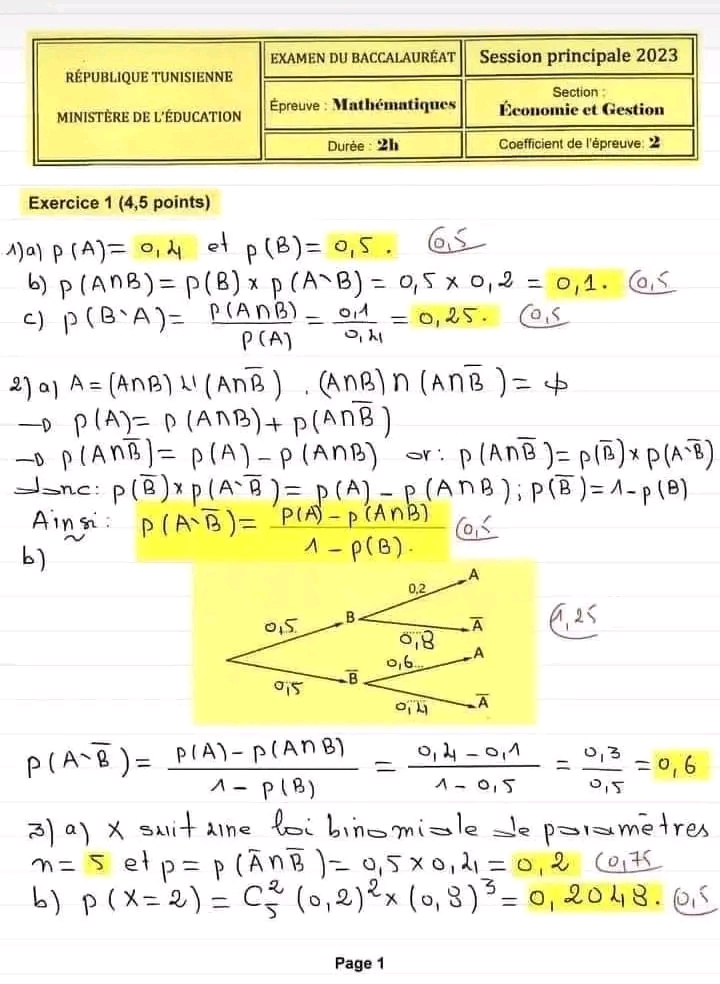 RÉPUBLIQUE TUNISIENNE
MINISTÈRE DE L'ÉDUCATION
EXAMEN DU BACCALAURÉAT
Session principale 2023
Épreuve : Mathématiques
Section :
Économie et Gestion
Durée : 2h
Coefficient de l'épreuve: 2
Exercice 1 (4,5 points)
1) a) p(A) = 0,4 et p(B) = 0,5. 0,5
b) p(A∩B) = p(B) × p(A\B) = 0,5 × 0,2 = 0,1. 0,5
c) p(B\A) = p(A∩B) / p(A) = 0,1 / 0,4 = 0,25. 0,5
2) a) A = (A∩B) ∪ (A∩B̅). (A∩B) ∩ (A∩B̅) = ϕ
→ p(A) = p(A∩B) + p(A∩B̅)
→ p(A∩B̅) = p(A) - p(A∩B) or: p(A∩B̅) = p(B̅) × p(A\B̅)
donc: p(B̅) × p(A\B̅) = p(A) - p(A∩B); p(B̅) = 1 - p(B)
Ainsi: p(A\B̅) = p(A) - p(A∩B) / 1 - p(B). 0,5
b)
0,5 B 0,2 A
0,8 A̅
0,5 B̅ 0,6... A
0,4 A̅
1,25
p(A\B̅) = p(A) - p(A∩B) / 1 - p(B) = 0,4 - 0,1 / 1 - 0,5 = 0,3 / 0,5 = 0,6
3) a) X suit une loi binomiale de paramètres
n = 5 et p = p(A̅∩B̅) = 0,5 × 0,4 = 0,2 0,75
b) p(X=2) = C₅² (0,2)² × (0,8)³ = 0,2048. 0,5
Page 1